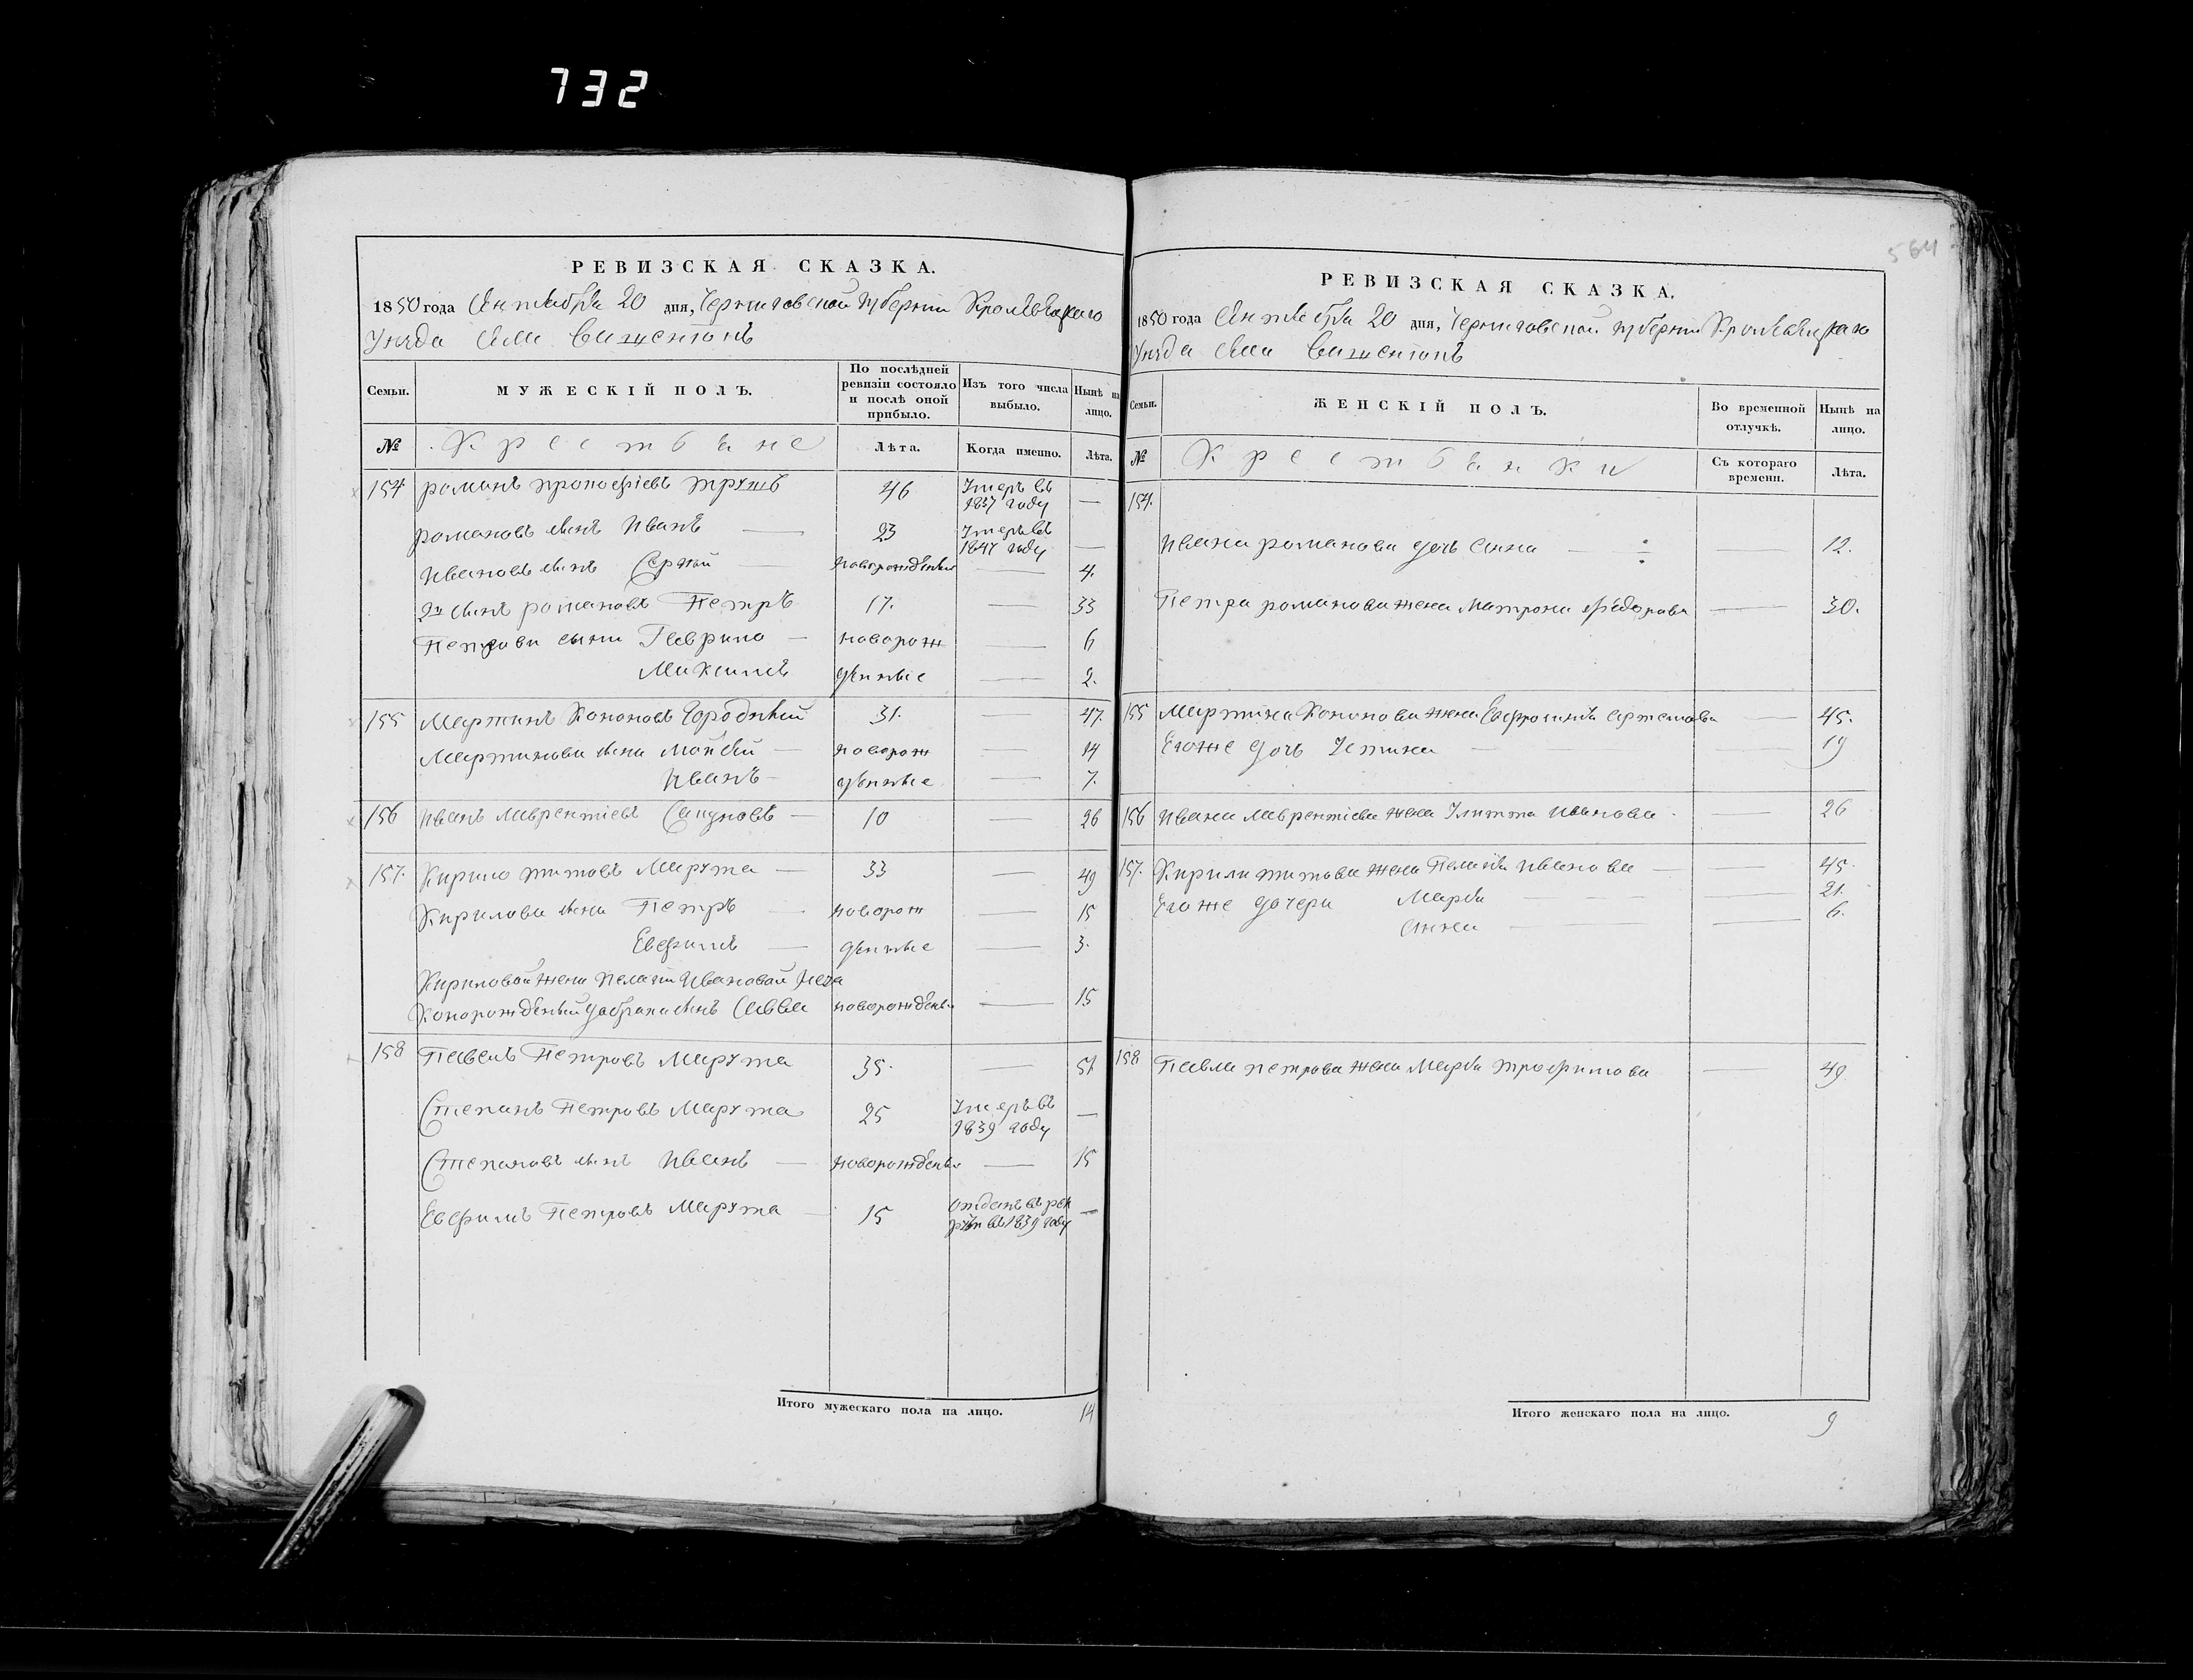 732
564
РЕВИЗСКАЯ СКАЗКА.
1850 года Сентября 20 дня, Черниговской губернии Кролевецкаго
Уезда села
Семьи.
МУЖЕСКІЙ ПОЛЪ.
По послѣдней ревизіи состояло и послѣ оной прибыло.
Изъ того числа выбыло.
Нынѣ на лицо.
№
Крестьяне
Лѣта.
Когда именно.
Лѣта.
154 Романъ Прокофіевъ 46 Умеръ въ 1837 году —
Романовъ сынъ Иванъ — 23 Умеръ въ 1847 году —
Ивановъ сынъ Сергій — новорожденый — 4.
2й сынъ Романовъ Петръ 17. — 33
Петрови сыни Гаврило — новорож — 6
Максимъ денные — 2.
155 Мартинъ Кононовъ Городній 31. — 47.
Мартинови сыни Мойсѣй — новорож — 14
Иванъ — денные — 7.
156 Иванъ Лаврентіевъ — 10 — 26
157. Кирило Титовъ Марута — 33 — 49
Кирилови сыни Петръ — новорож — 15
Евфимъ — денные — 3.
Кириловой жени Пелагіи Ивановой
сынъ Савва новорожденый — 15
158 Павелъ Петровъ Марута 35. — 51
Степанъ Петровъ Марута 25 Умеръ въ 1839 году —
Степановъ сынъ Иванъ — новорожденый — 15
Евфимъ Петровъ Марута — 15 Отданъ въ рек руты въ 1839 году —
Итого мужескаго пола на лицо. 14
РЕВИЗСКАЯ СКАЗКА.
1850 года Сентября 20 дня, Черниговской губернии Кролевецкаго
Уезда села
Семьи.
ЖЕНСКІЙ ПОЛЪ.
Во временной отлучкѣ.
Нынѣ на лицо.
№
Крестьянки
Съ котораго времени.
Лѣта.
154.
Ивана Романова дочь Анна — — 12.
Петра Романова жена Матрона Федорова — 30.
155 Мартина Кононова жена Евфросинія Артемова — 45.
Егоже дочь Устина — 19
156 Ивана Лаврентіева жена Улитта Иванова — 26
157. Кирила Титова жена Пелагія Иванова — — 45.
Егоже дочери Марія — — 21.
Анна — — 6.
158 Павла Петрова жена Марія Трофимова — 49
Итого женскаго пола на лицо. 9